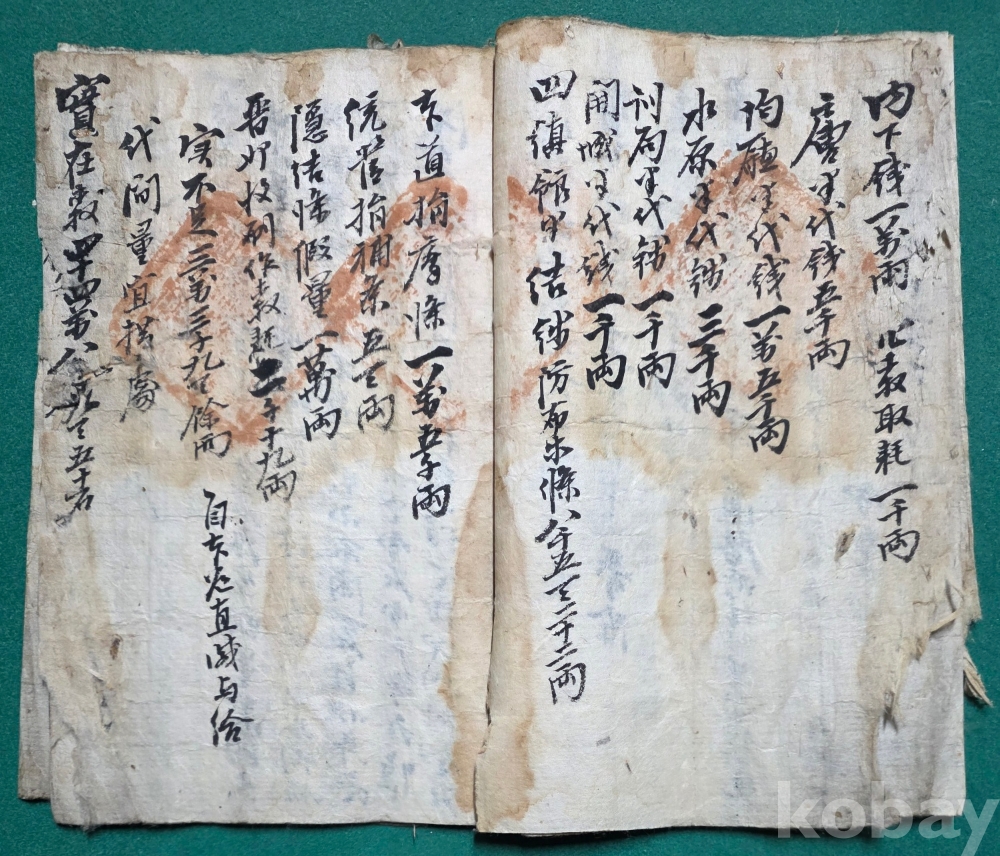 內下錢一萬兩 以教取耗一千兩
米代錢五千兩
均廳米代錢一萬五千兩
水原米代錢三千兩
訓局米代錢一千兩
開城米代錢一千兩
四鎮館 結錢防布米條八千五百二十二兩
本道捐 條一萬五千兩
統營捐補条五百兩
隱結條假量一萬兩
晉州收刷作教耗二千十九兩
自本 直減与給
実不足三萬三千九百餘兩
代間量宜措處
實在教四十四萬八千九百五十石
kobay